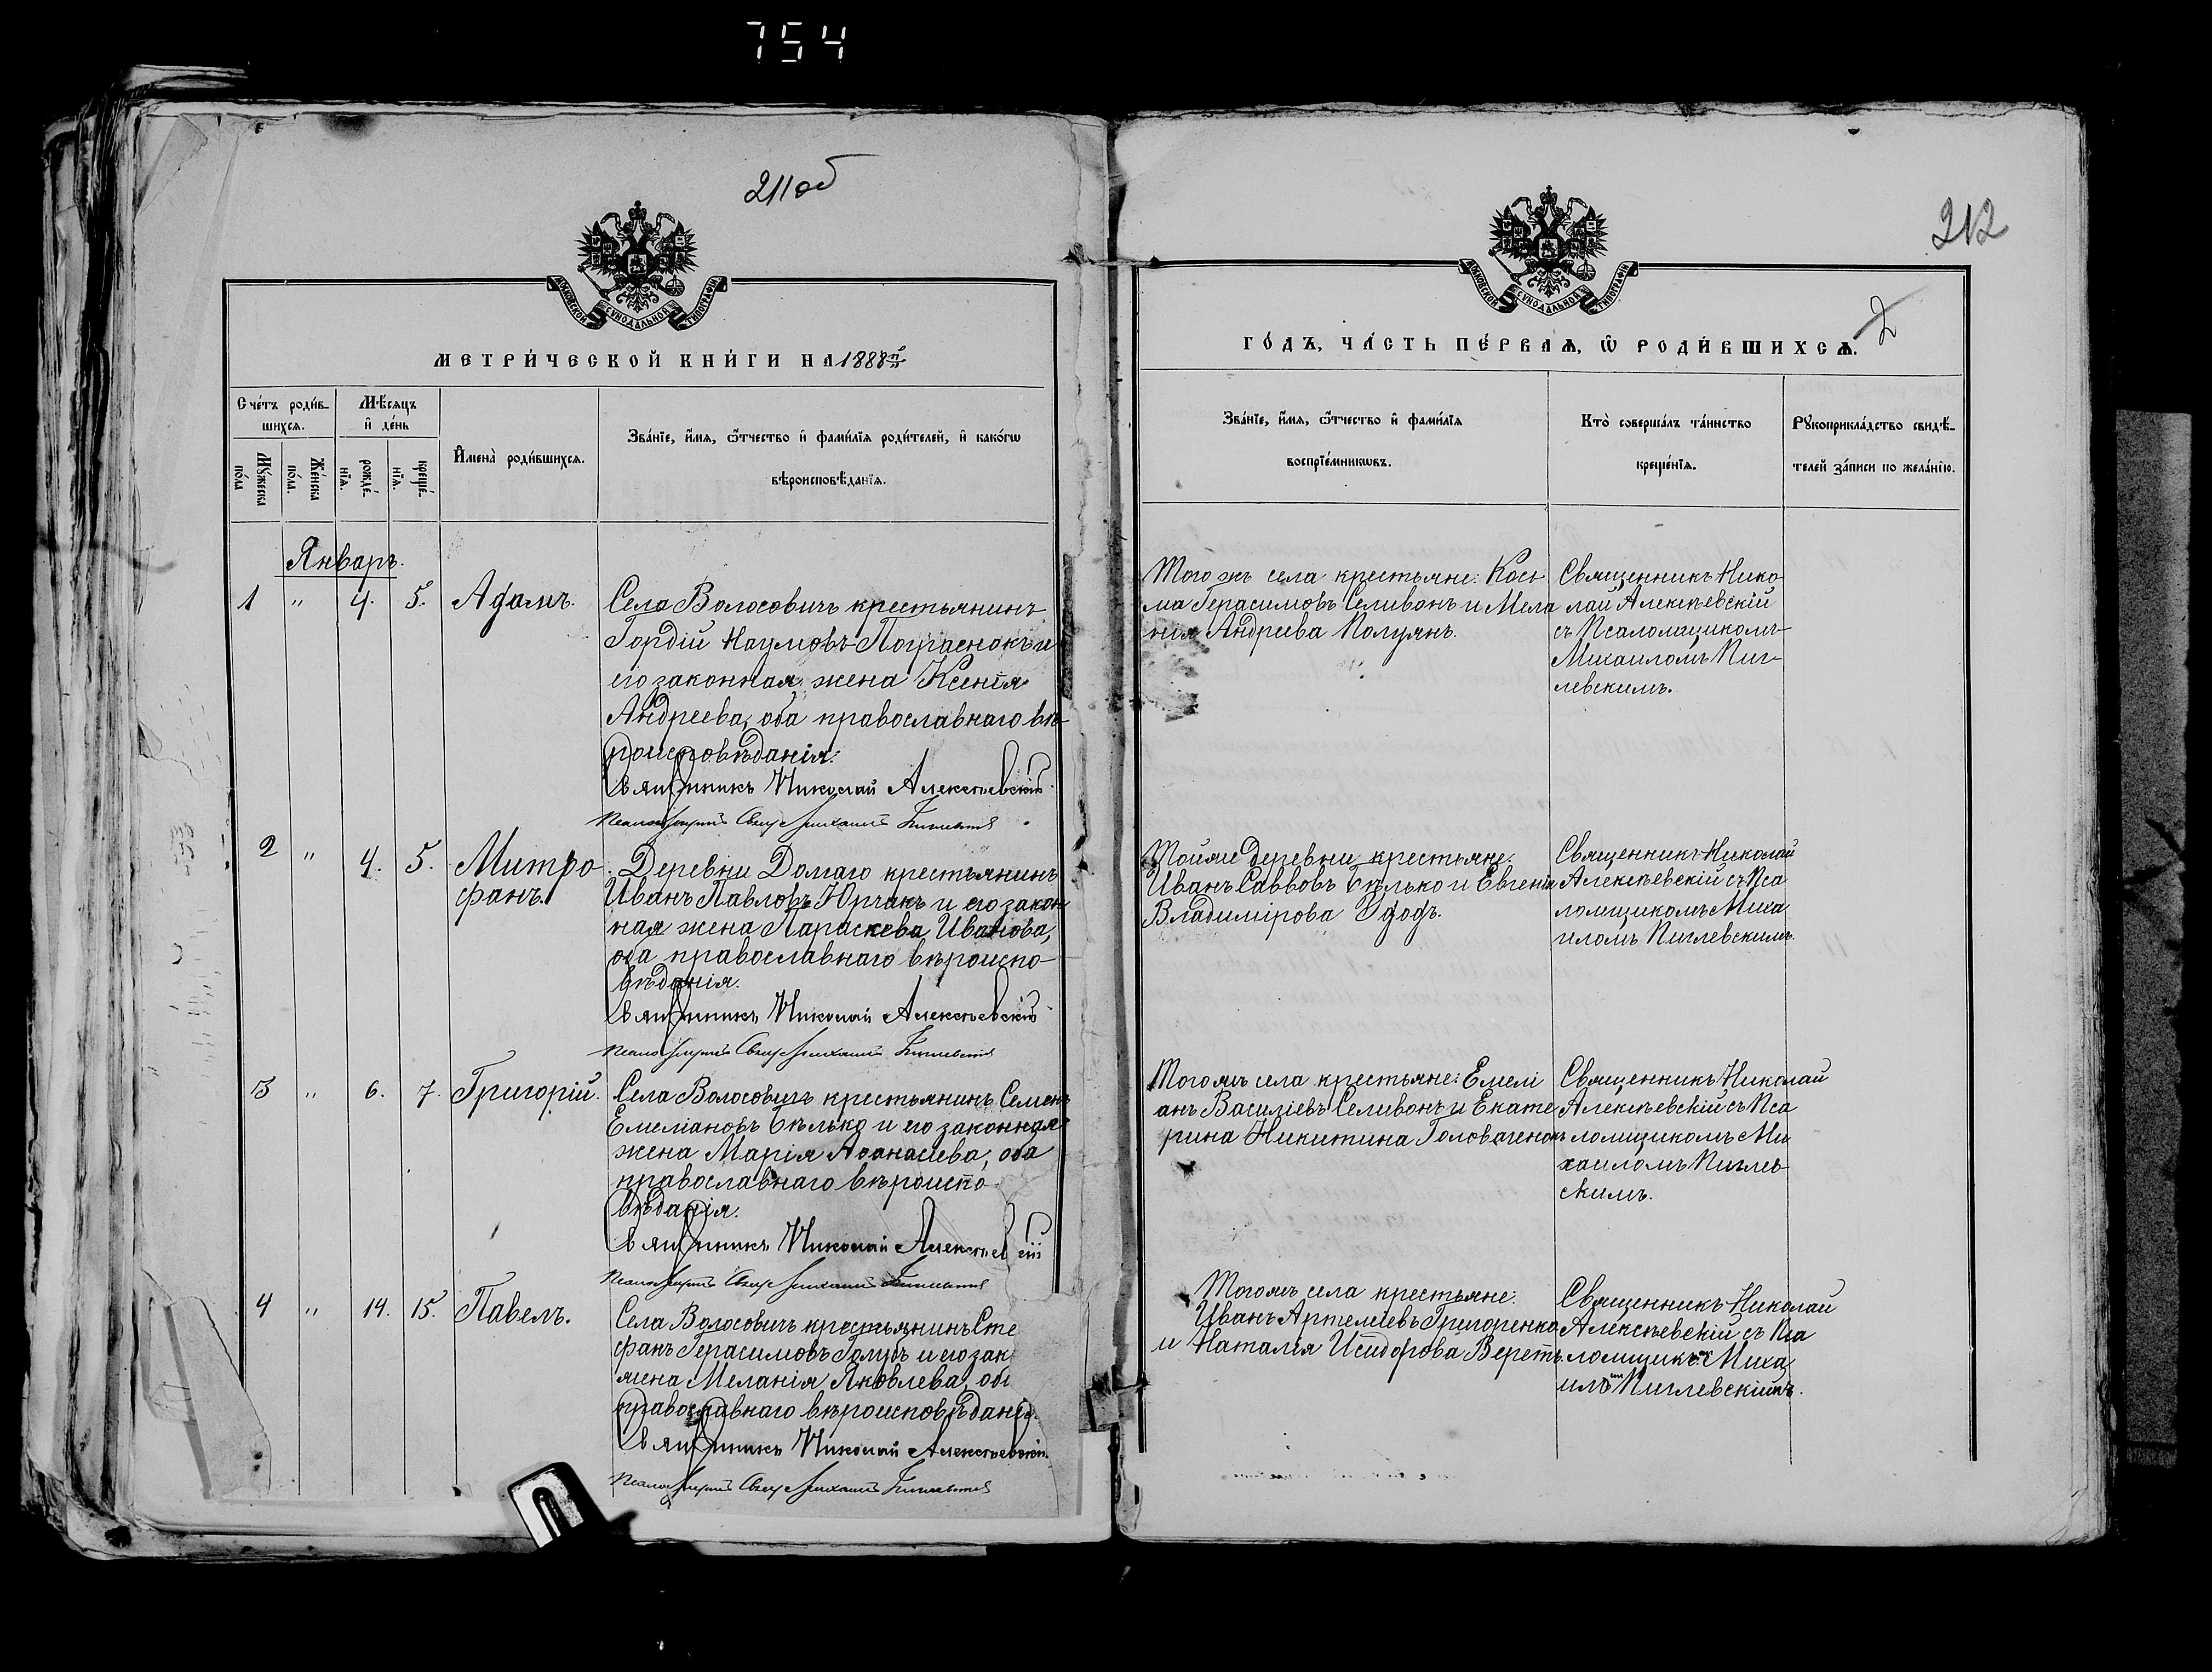 754
211об
МОСКОВСКОЙ СѴНОДАЛЬНОЙ ТИПОГРАФІИ
МЕТРИ́ЧЕСКОЙ КНИ́ГИ НА 1888й
Сче́тъ роди́в-
шихсѧ.
Мѣ́сѧцъ
и҆ де́нь
Мꙋ́жеска
по́ла
Же́нска
по́ла.
рожде́-
нїѧ.
креще́-
нїѧ.
И҆мена̀ роди́вшихсѧ.
Зва́нїе, и҆́мѧ, ѻ҆́тчество и҆ фами́лїѧ роди́телей, и҆ како́гѡ
вѣроисповѣ́данїѧ.
Январь.
1 " 4. 5. Адамъ.
Села Волосовичъ крестьянинъ
Гордій Наумовъ и
его законная жена Ксенія
Андреева, оба православнаго вѣ-
роисповѣданія.
Священникъ Николай Алексѣевскій
Псаломщикъ Михаилъ Пиглевскій
2 " 4. 5. Митро
фанъ.
Деревни Долгаго крестьянинъ
Иванъ Павловъ Юрчакъ и его закон
ная жена Параскева Иванова,
оба православнаго вѣроиспо-
вѣданія.
Священникъ Николай Алексѣевскій
Псаломщикъ Михаилъ Пиглевскій
3 " 6. 7. Григорій.
Села Волосовичъ крестьянинъ Семенъ
Емеліановъ Бѣлько и его законная
жена Марія Аѳанасіева, оба
православнаго вѣроиспо-
вѣданія.
Священникъ Николай Алексѣевскій
Псаломщикъ Михаилъ Пиглевскій
4 " 14. 15. Павелъ.
Села Волосовичъ крестьянинъ Сте
фанъ Герасимовъ Голубъ и его зак
жена Меланія Яковлева, об
православнаго вѣроисповѣданія.
Священникъ Николай Алексѣевскій
Псаломщикъ Михаилъ Пиглевскій
212
МОСКОВСКОЙ СѴНОДАЛЬНОЙ ТИПОГРАФІИ
2
ГО́ДЪ, ЧА́СТЬ ПЕ́РВАѦ, Ѡ҆ РОДИ́ВШИХСѦ.
Зва́нїе, и҆́мѧ, ѻ҆́тчество и҆ фами́лїѧ
воспрїе́мникѡвъ.
Кто̀ соверша́лъ та́инство
креще́нїѧ.
Рꙋкоприкла́дство свидѣ́-
телей за́писи по жела́нїю.
Того жъ села крестьяне: Кось
ма Герасимовъ Селивонъ и Мела
нія Андреева Полуянъ.
Священникъ Нико
лай Алексѣевскій
съ Псаломщикомъ
Михаиломъ Пиг-
левскимъ.
Тойже деревни крестьяне:
Иванъ Саввовъ Бѣлько и Евгенія
Владимірова
Священникъ Николай
Алексѣевскій съ Пса
ломщикомъ Миха
иломъ Пиглевскимъ.
Того жъ села крестьяне: Емелі
анъ Василіевъ Селивонъ и Екате
рина Никитина Головаченокъ
Священникъ Николай
Алексѣевскій съ Пса
ломщикомъ Ми
хаиломъ Пиглев
скимъ.
Того жъ села крестьяне:
Иванъ Артеміевъ Григоренко
и Наталія Исидорова
Священникъ Николай
Алексѣевскій съ Пса
ломщикомъ Миха
иломъ Пиглевскимъ.